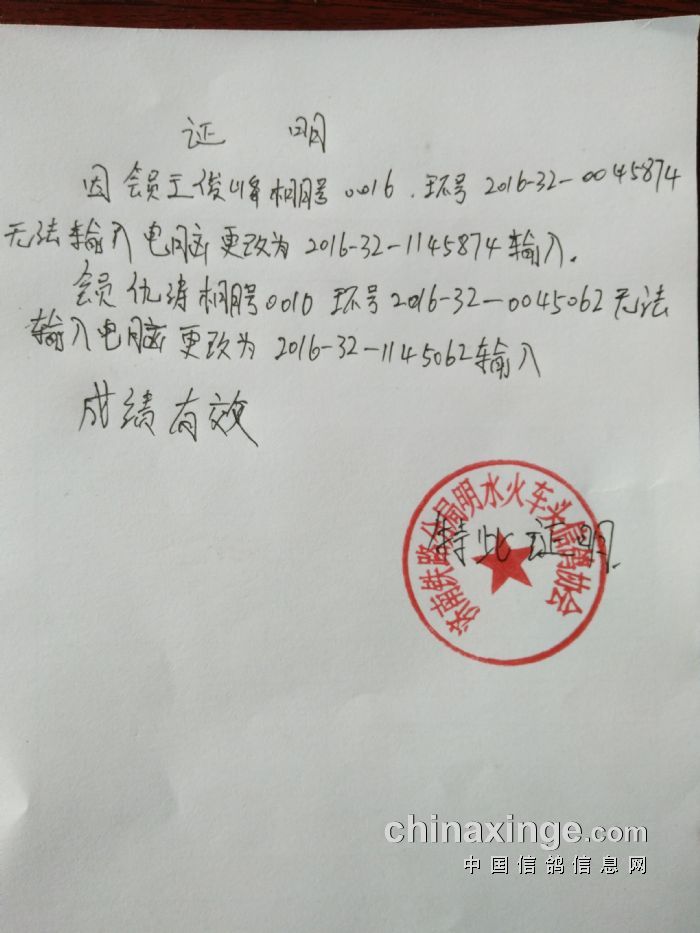 证 明
因会员王俊峰棚号0016.环号2016-32-0045874
无法输入电脑更改为2016-32-1145874输入.
会员仇涛棚号0010环号2016-32-0045062无法
输入电脑更改为2016-32-1145062输入
成绩有效
济南铁路分局明水火车头信鸽协会
特此证明.
chinaxinge.com
中国信鸽信息网